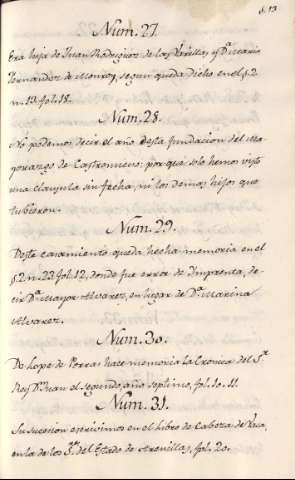 f. 13
Num. 27.
Era hija de Juan Rodriguez de las Varillas, y Dª Maria
Fernandez de Monroy, segun queda dicho en el §. 2
n. 13. fol. 18.
Num. 28.
No podemos decir el año desta fundacion del Ma-
yorazgo de Castronuevo: por que solo hemos visto
una clausula sin fecha, ni los demas hijos que
tubieron.
Num. 29.
Deste casamiento queda hecha memoria en el
§. 2. n. 23. fol. 12, donde fue errata de Imprenta, de-
cir Dª Mayor Alvarez, en lugar de Dª Marina
Alvarez.
Num. 30.
De Lope de Porras hace memoria la Cronica del Sr
Rey Dn Juan el Segundo, año septimo, fol. 10. 11
Num. 31.
Su sucesion escrivimos en el libro de Cabeza de Vaca,
en la de los Srs del Estado de Arenillas, fol. 20.